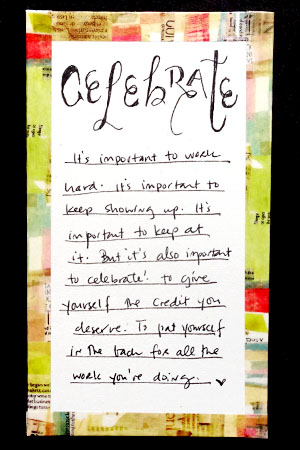 CELEBRATE
It's important to work
hard. It's important to
keep showing up. It's
important to keep at
it. But it's also important
to celebrate! to give
yourself the credit you
deserve. To pat yourself
in the back for all the
work you're doing.